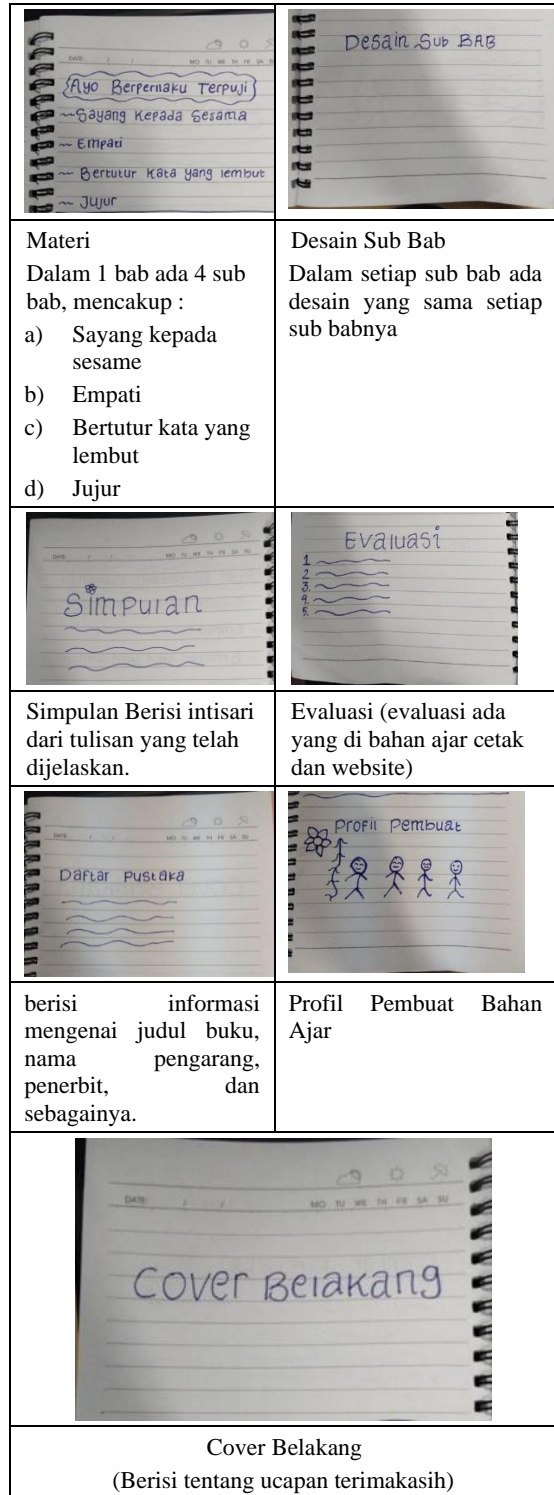 DATE / /
MO TU WE TH FR SA
Ayo Berperilaku Terpuji
~ Sayang Kepada Sesama
~ Empati
~ Bertutur Kata yang lembut
~ Jujur
Desain Sub BAB
Materi
Dalam 1 bab ada 4 sub
bab, mencakup :
a) Sayang kepada
sesame
b) Empati
c) Bertutur kata yang
lembut
d) Jujur
Desain Sub Bab
Dalam setiap sub bab ada
desain yang sama setiap
sub babnya
DATE / /
MO TU WE TH FR SA SU
Simpulan
Evaluasi
1
2
3.
4.
5.
Simpulan Berisi intisari
dari tulisan yang telah
dijelaskan.
Evaluasi (evaluasi ada
yang di bahan ajar cetak
dan website)
DATE / /
MO TU WE TH FR SA SU
Daftar Pustaka
Profil Pembuat
berisi informasi
mengenai judul buku,
nama pengarang,
penerbit, dan
sebagainya.
Profil Pembuat Bahan
Ajar
DATE: / /
MO TU WE TH FR SA SU
Cover Belakang
Cover Belakang
(Berisi tentang ucapan terimakasih)